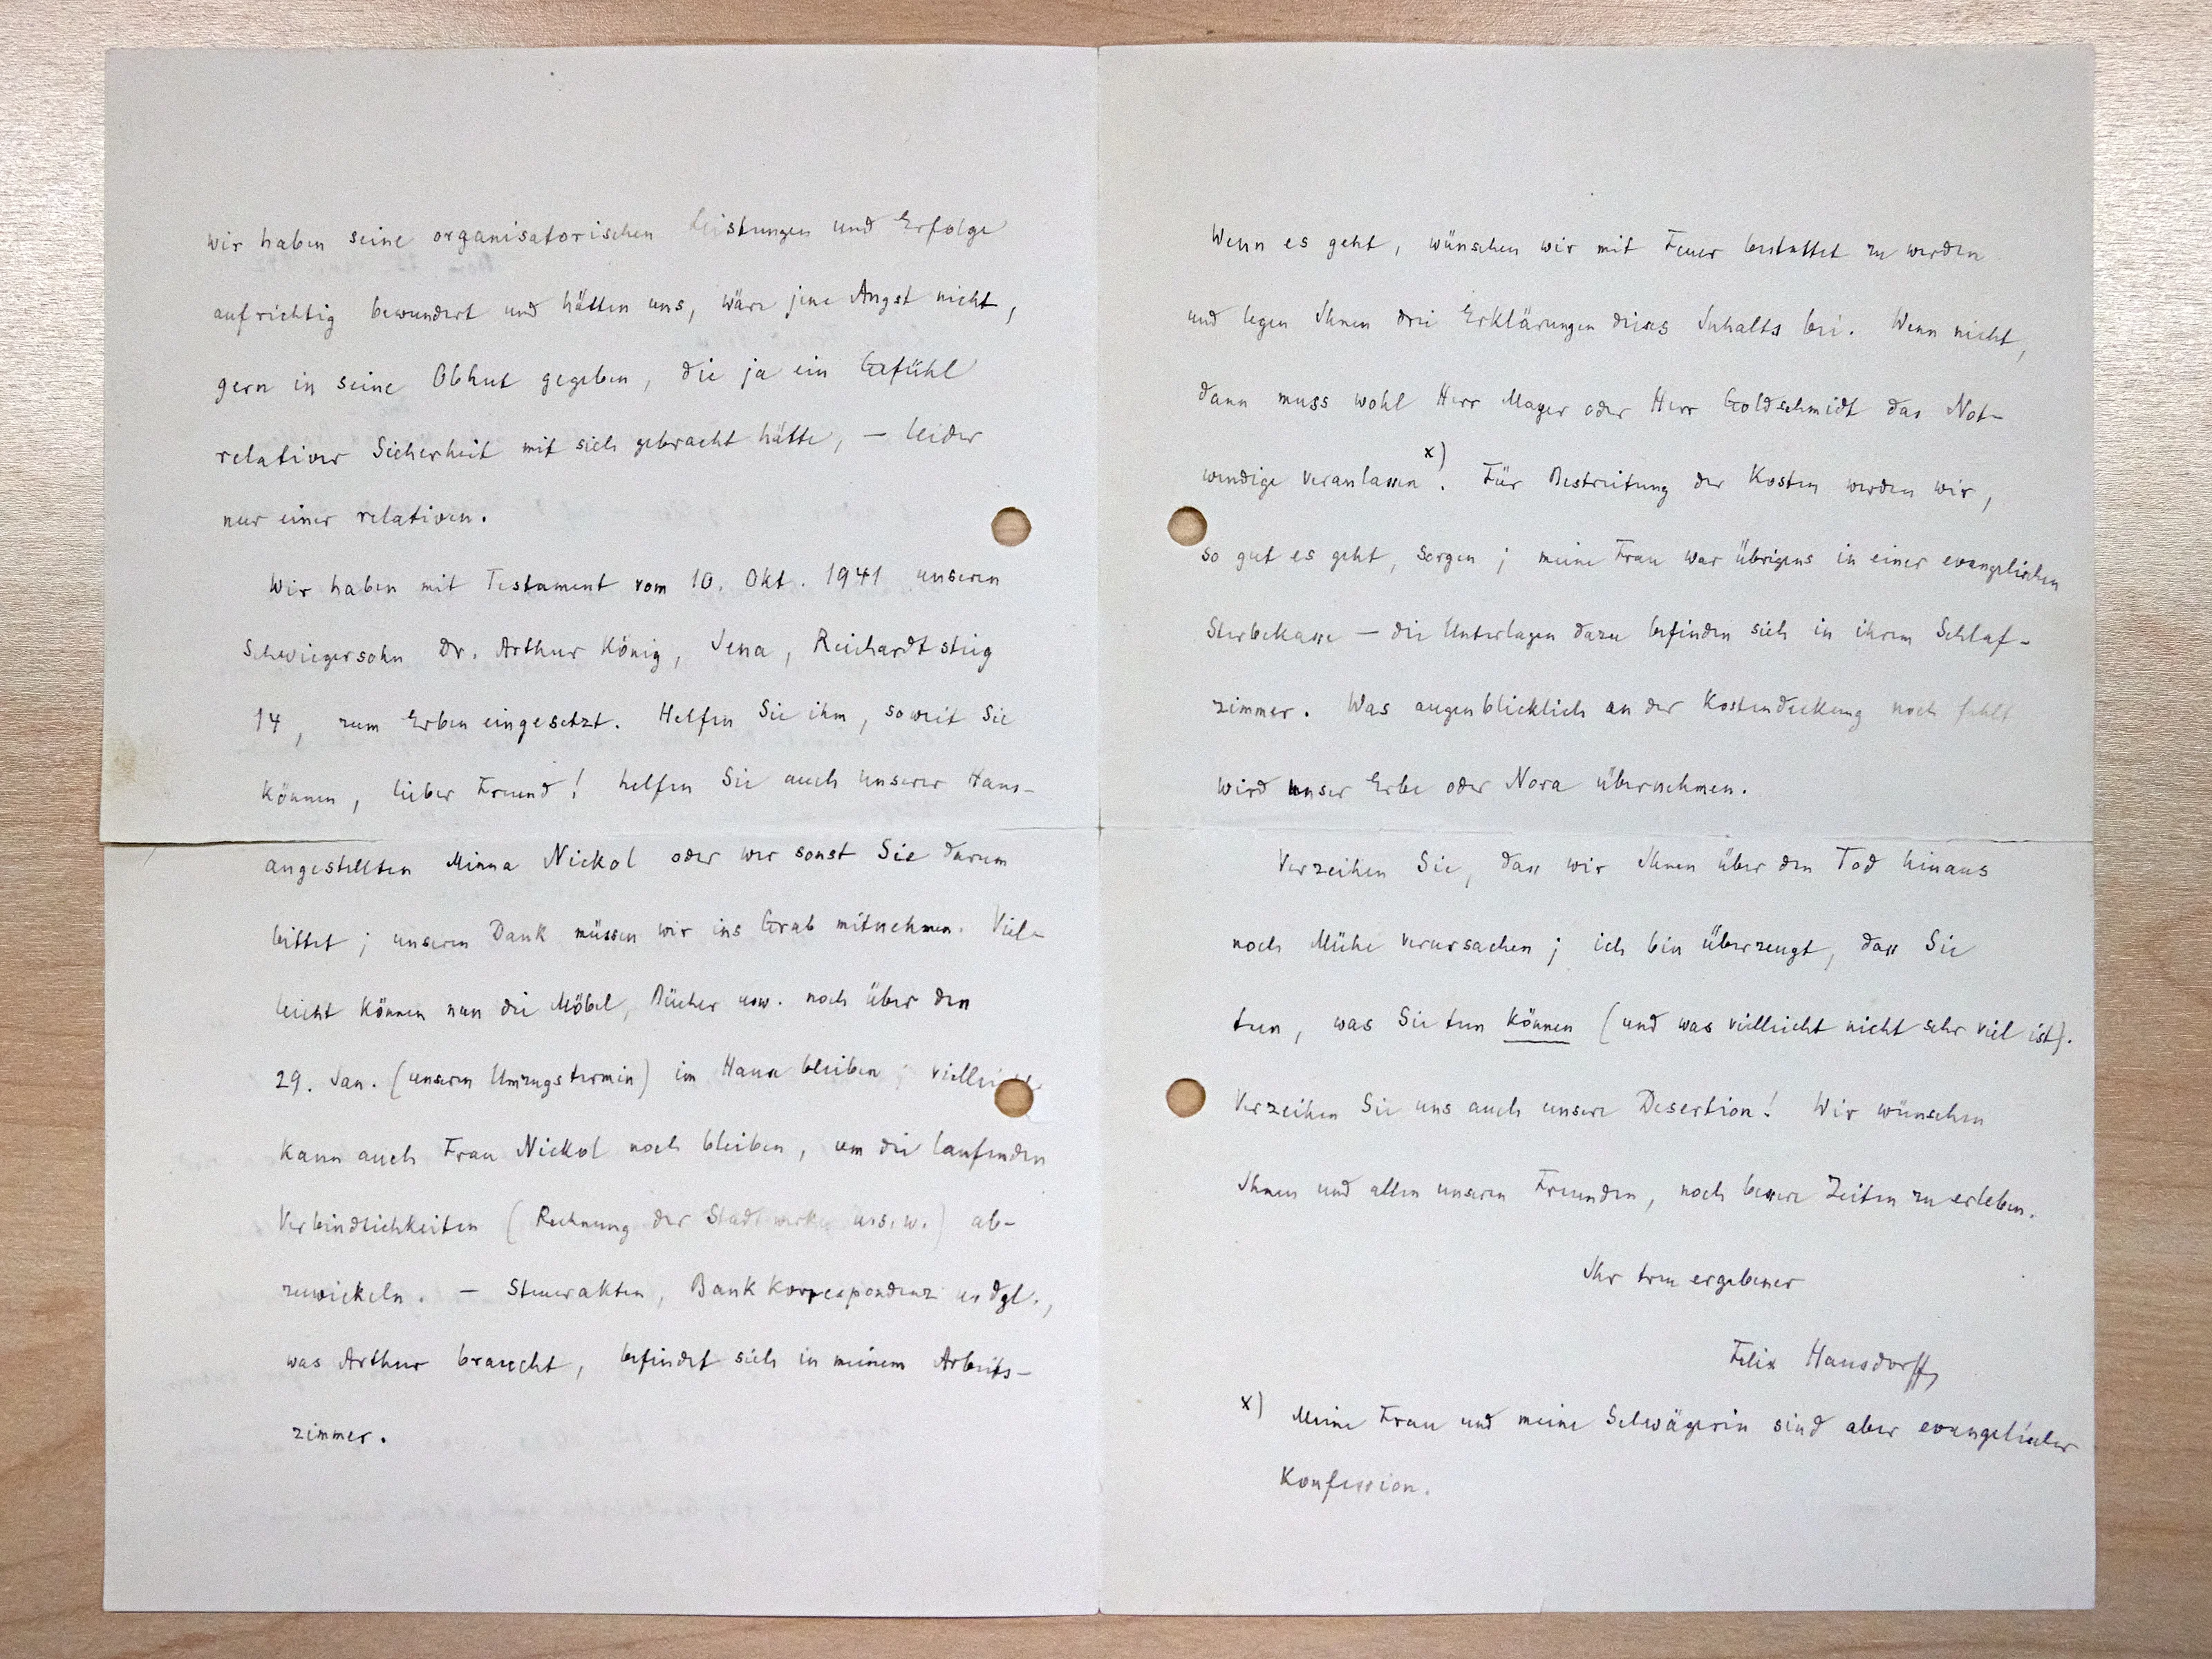 wir haben seine organisatorischen Leistungen und Erfolge
aufrichtig bewundert und hätten uns, wäre jene Angst nicht,
gern in seine Obhut gegeben, die ja ein Gefühl
relativer Sicherheit mit sich gebracht hätte, – leider
nur einer relativen.
Wir haben mit Testament vom 10. Okt. 1941 unseren
Schwiegersohn Dr. Arthur König, Jena, Reichardtstieg
14, zum Erben eingesetzt. Helfen Sie ihm, soweit Sie
können, lieber Freund! helfen Sie auch unserer Haus-
angestellten Minna Nickol oder wer sonst Sie darum
bittet; unseren Dank müssen wir ins Grab mitnehmen. Viel-
leicht können nun die Möbel, Bücher usw. noch über den
29. Jan. (unseren Umzugstermin) im Hause bleiben; vielleicht
kann auch Frau Nickol noch bleiben, um die laufenden
Verbindlichkeiten (Rechnung der Stadtwerke u.s.w.) ab-
zuwickeln. – Steuerakten, Bankkorrespondenz u. dgl.,
was Arthur braucht, befindet sich in meinem Arbeits-
zimmer.
Wenn es geht, wünschen wir mit Feuer bestattet zu werden
und legen Ihnen drei Erklärungen dieses Inhalts bei. Wenn nicht,
dann muss wohl Herr Mayer oder Herr Goldschmidt das Not-
wendige veranlassen x). Für Bestreitung der Kosten werden wir,
so gut es geht, sorgen; meine Frau war übrigens in einer evangelischen
Sterbekasse – die Unterlagen dazu befinden sich in ihrem Schlaf-
zimmer. Was augenblicklich an der Kostendeckung noch fehlt
wird unser Erbe oder Nora übernehmen.
Verzeihen Sie, dass wir Ihnen über den Tod hinaus
noch Mühe verursachen; ich bin überzeugt, dass Sie
tun, was Sie tun können (und was vielleicht nicht sehr viel ist).
Verzeihen Sie uns auch unsere Desertion! Wir wünschen
Ihnen und allen unseren Freunden, noch bessere Zeiten zu erleben.
Ihr treu ergebener
Felix Hausdorff
x) Meine Frau und meine Schwägerin sind aber evangelischer
Konfession.